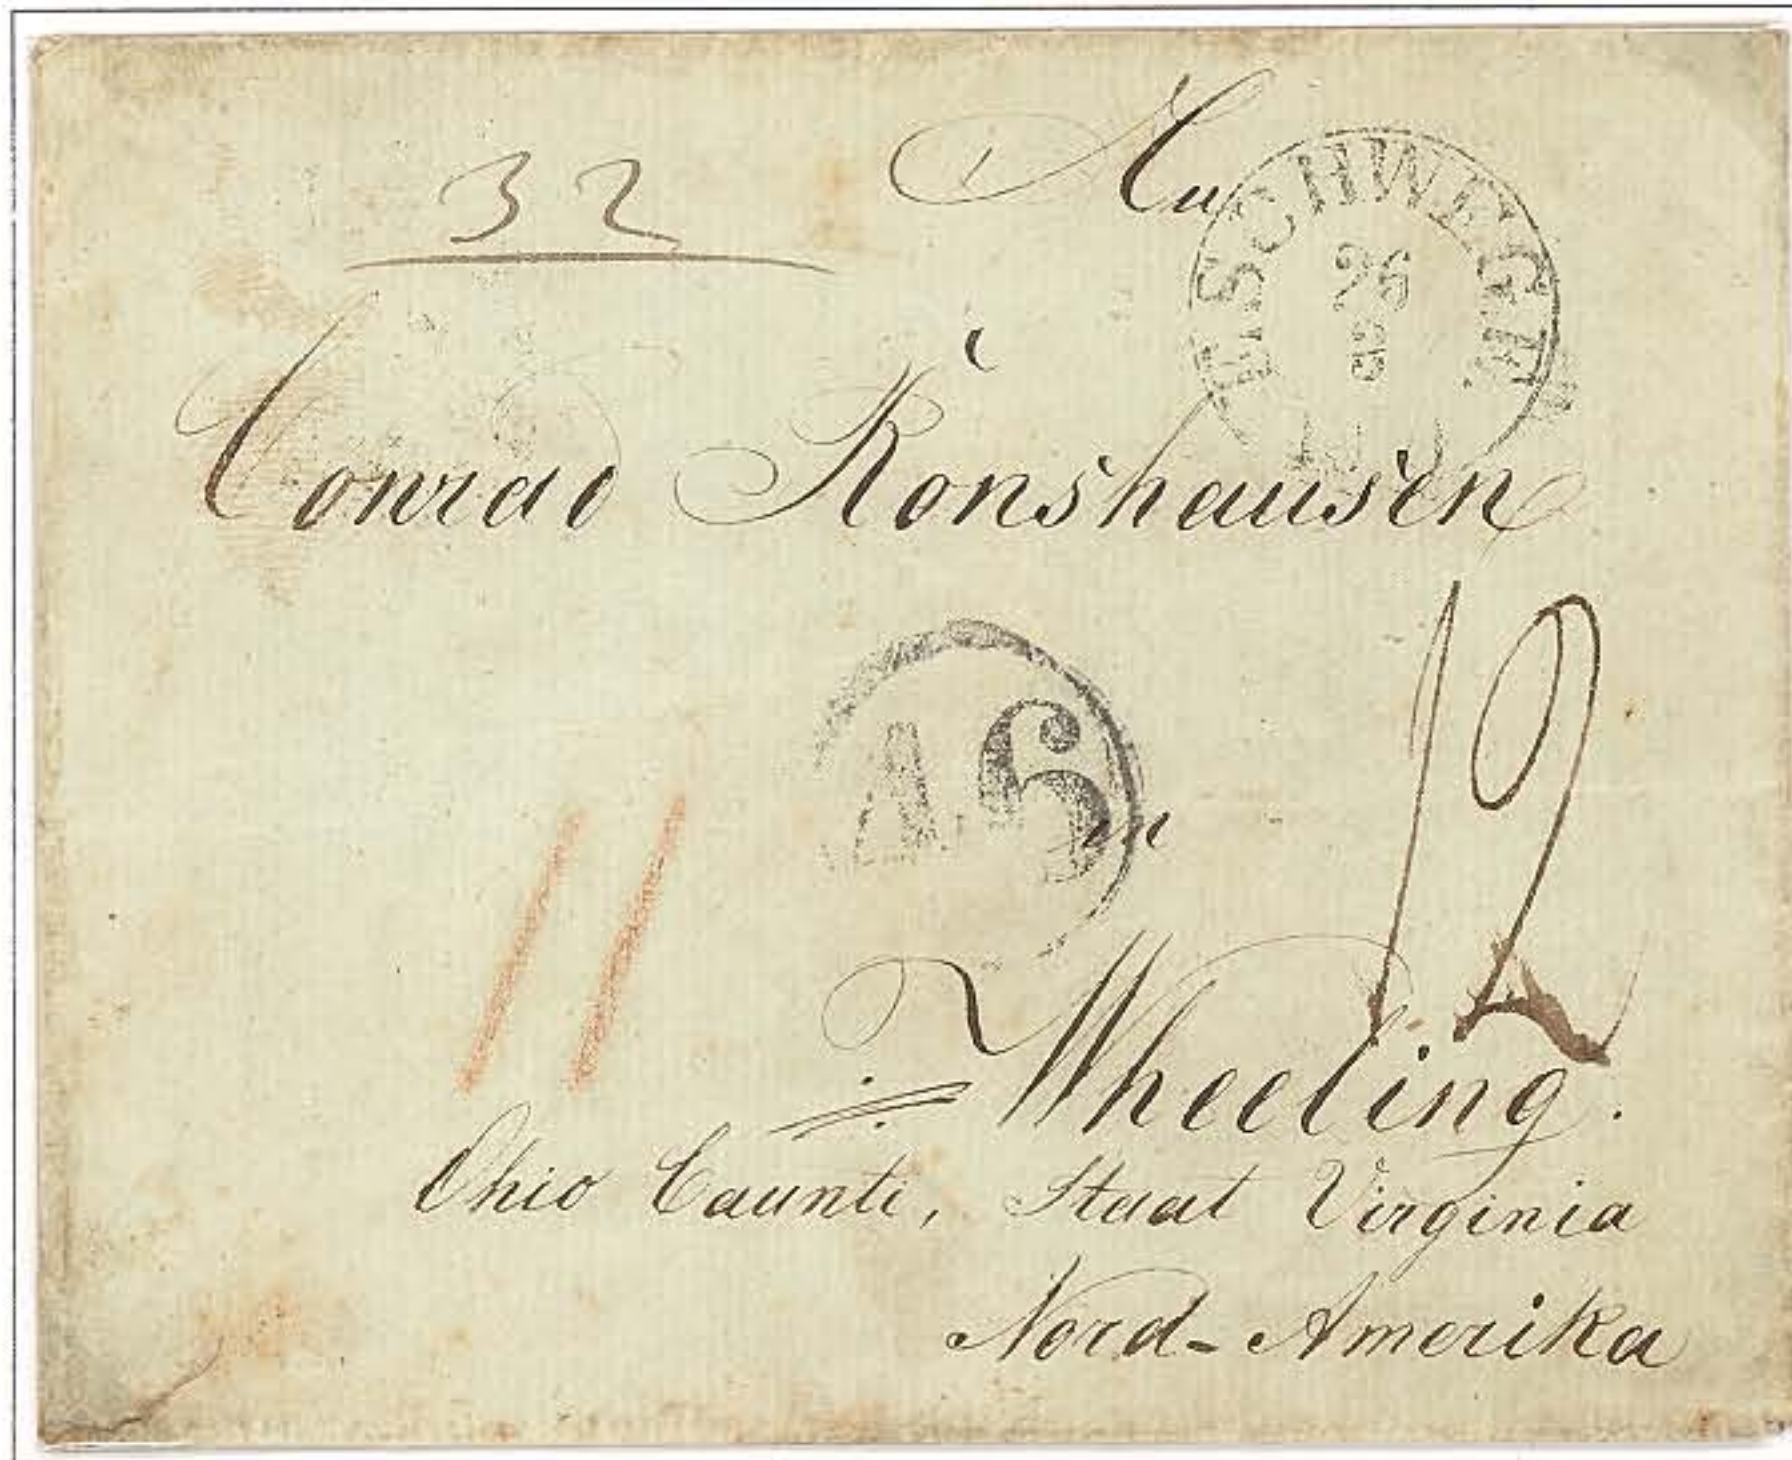 32
An
ESCHWEGE
26
3
Conrad Rönshausen
A6
in
12
11
Wheeling.
Ohio Caunti, Staat Virginia
Nord-Amerika